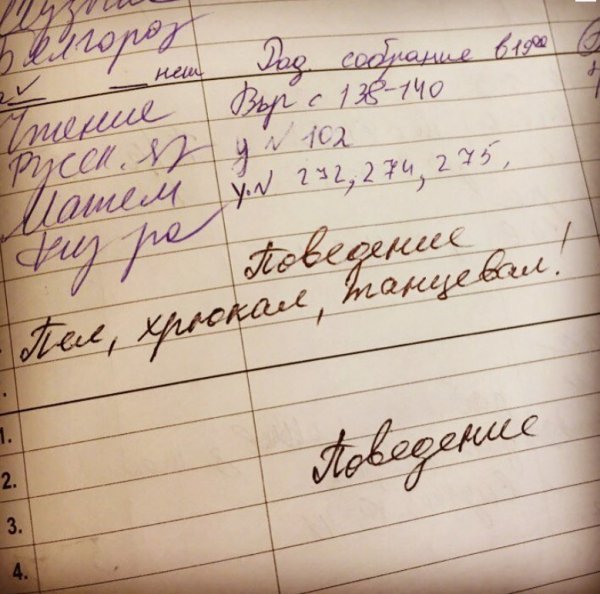 Музыка
Белгород
нет Род. собрание в 19⁰⁰
Чтение В〡р с 138-140
Русск. яз у N 102
Матем у.N 272, 274, 275.
Физ ра
Поведение
Пел, хрюкал, танцевал!
1.
Поведение
2.
3.
4.